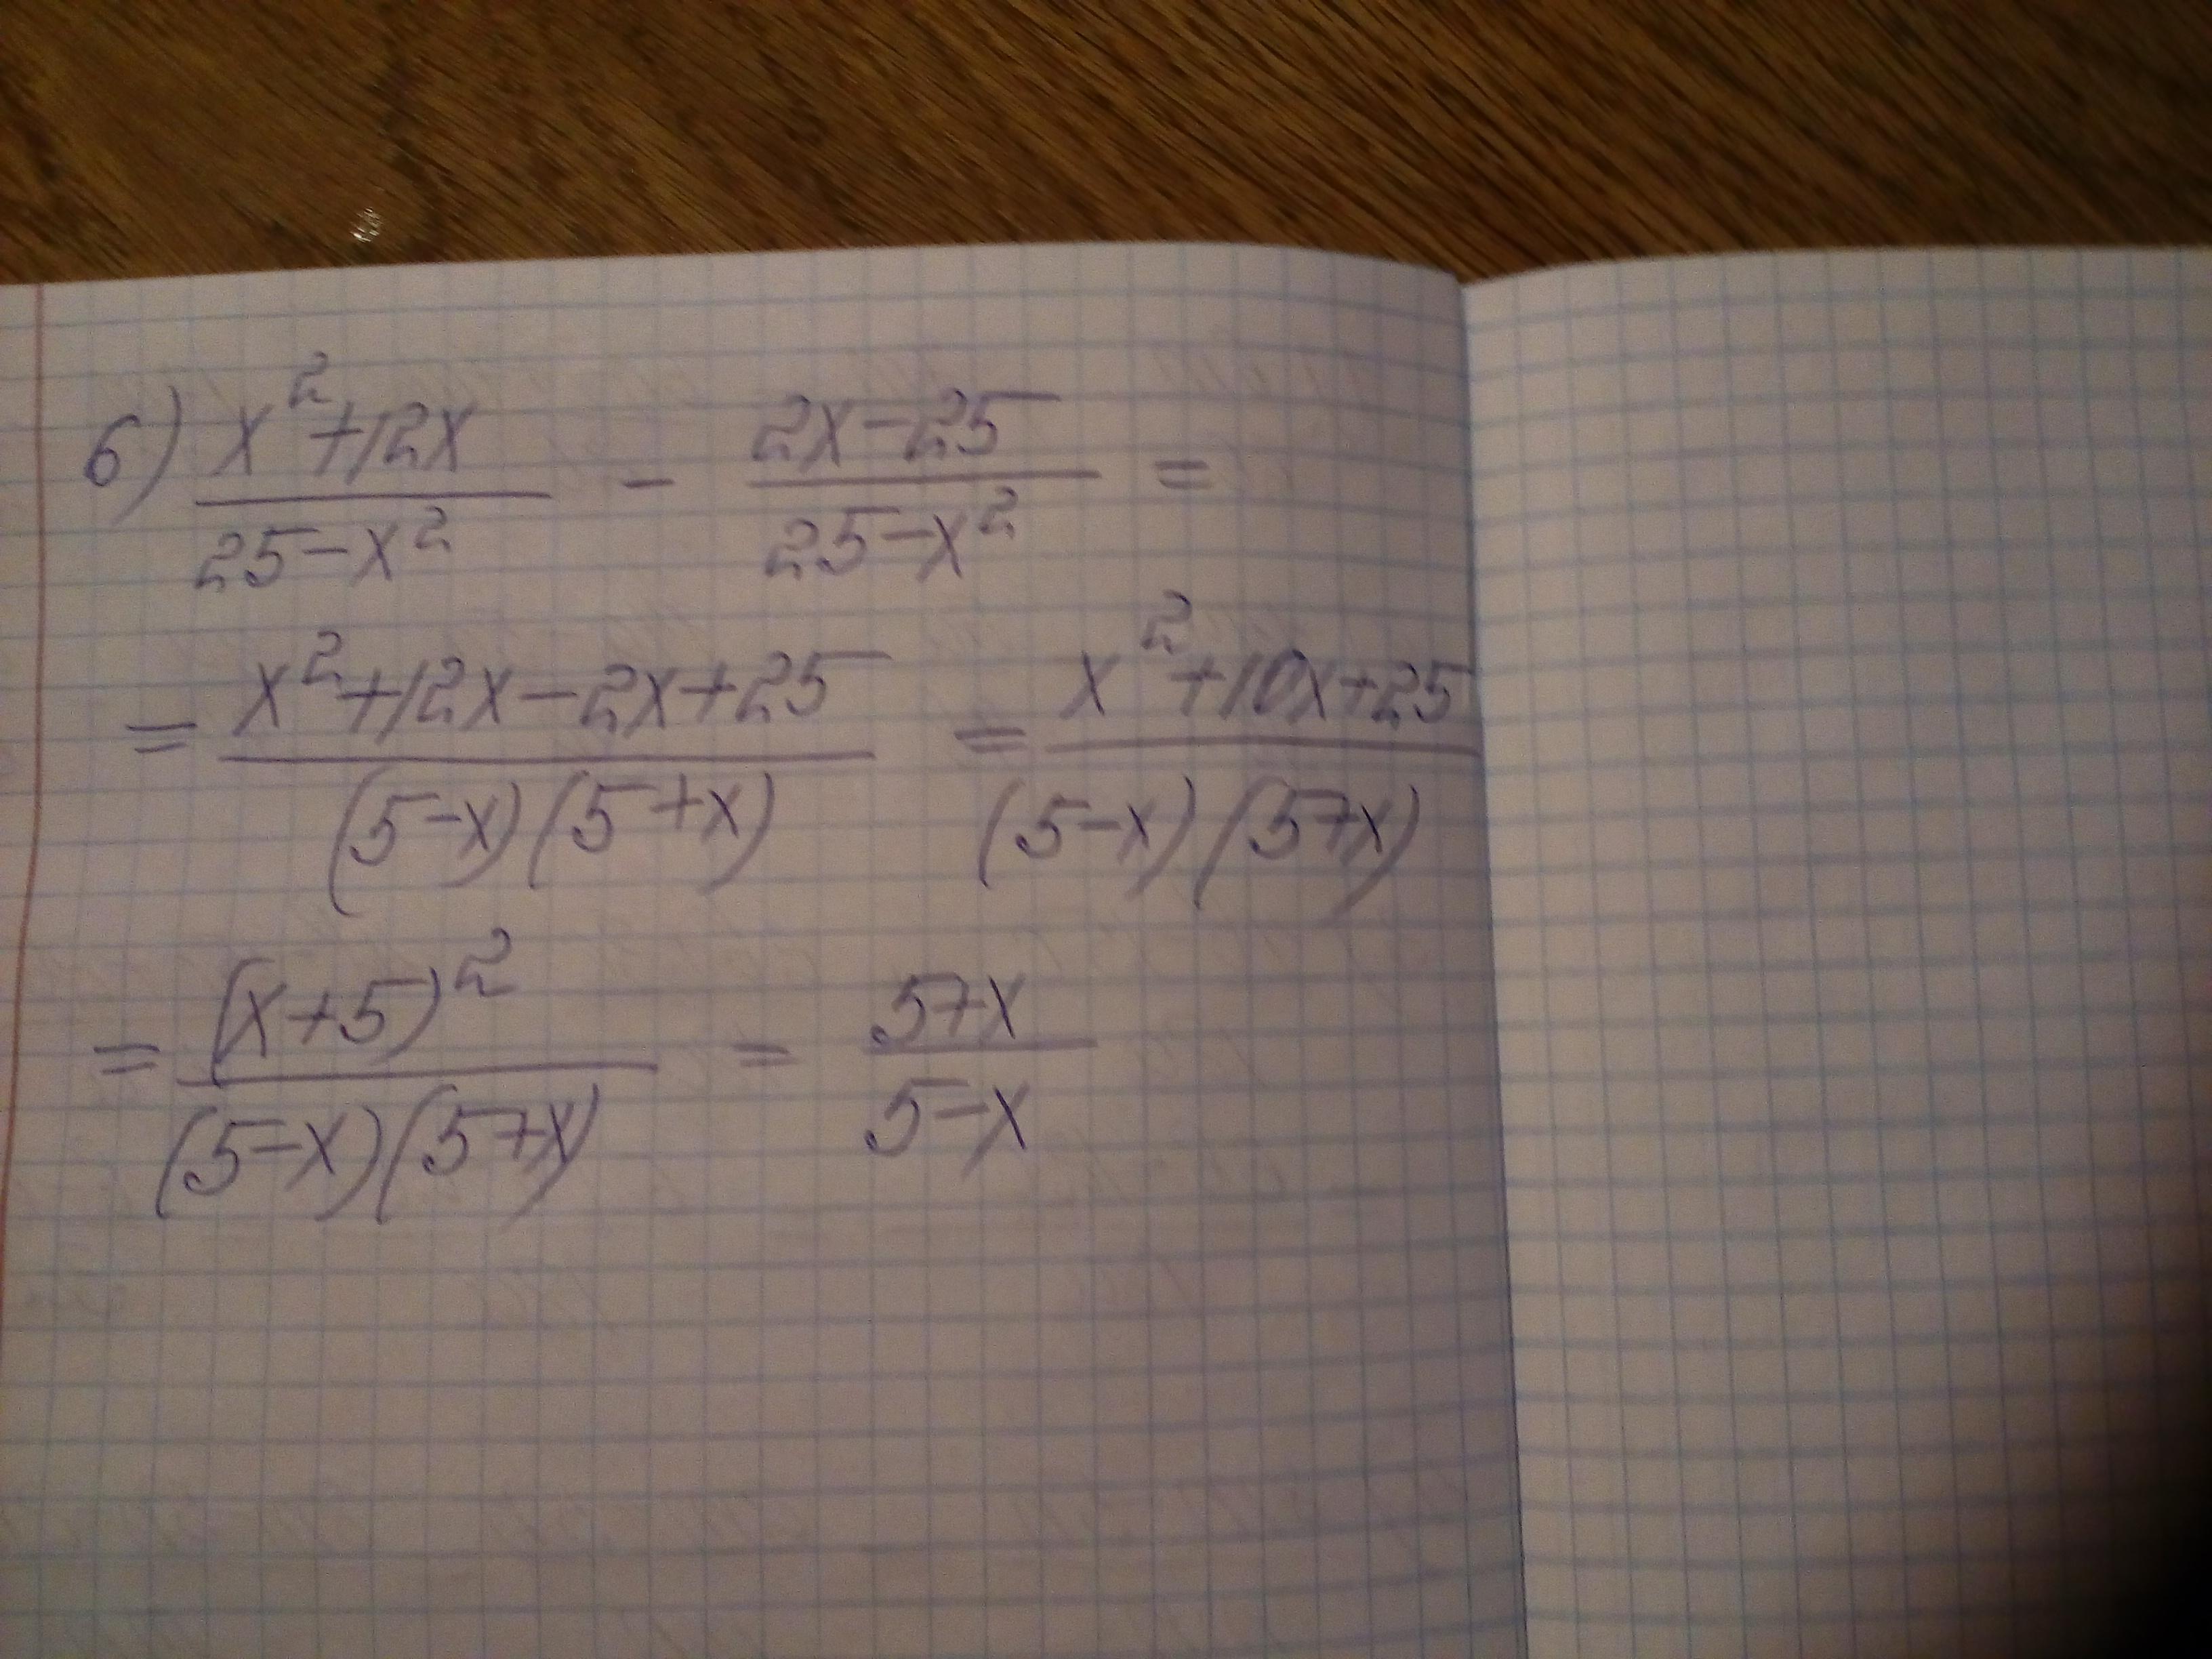 6) (x²+12x)/(25-x²) - (2x-25)/(25-x²) =
= (x²+12x-2x+25)/((5-x)(5+x)) = (x²+10x+25)/((5-x)(5+x))
= (x+5)²/((5-x)(5+x)) = (5+x)/(5-x)